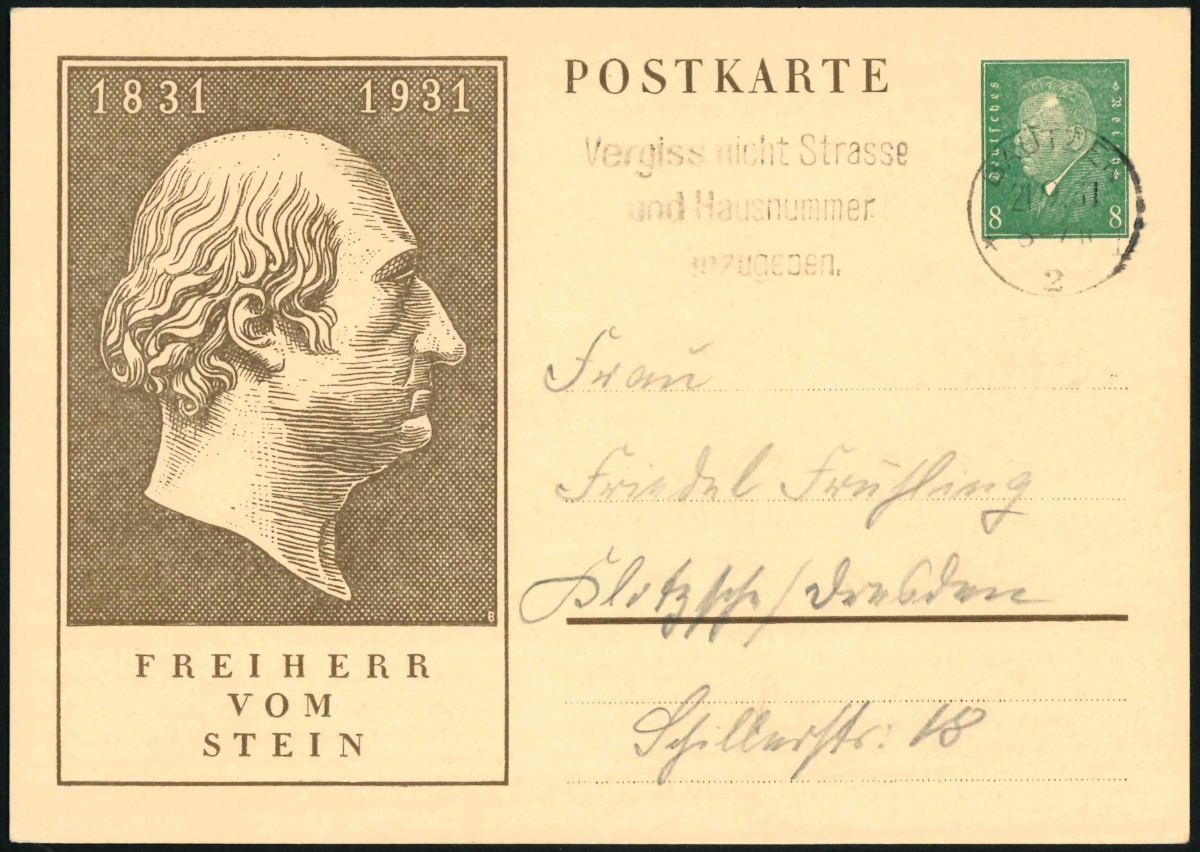 1831 1931
FREIHERR
VOM
STEIN
POSTKARTE
Vergiss nicht Strasse
und Hausnummer
anzugeben.
Deutsches Reich
8 8
BAUTZEN
2
Frau
Friedel Frühling
Klotzsche/Dresden
Schillerstr. 18